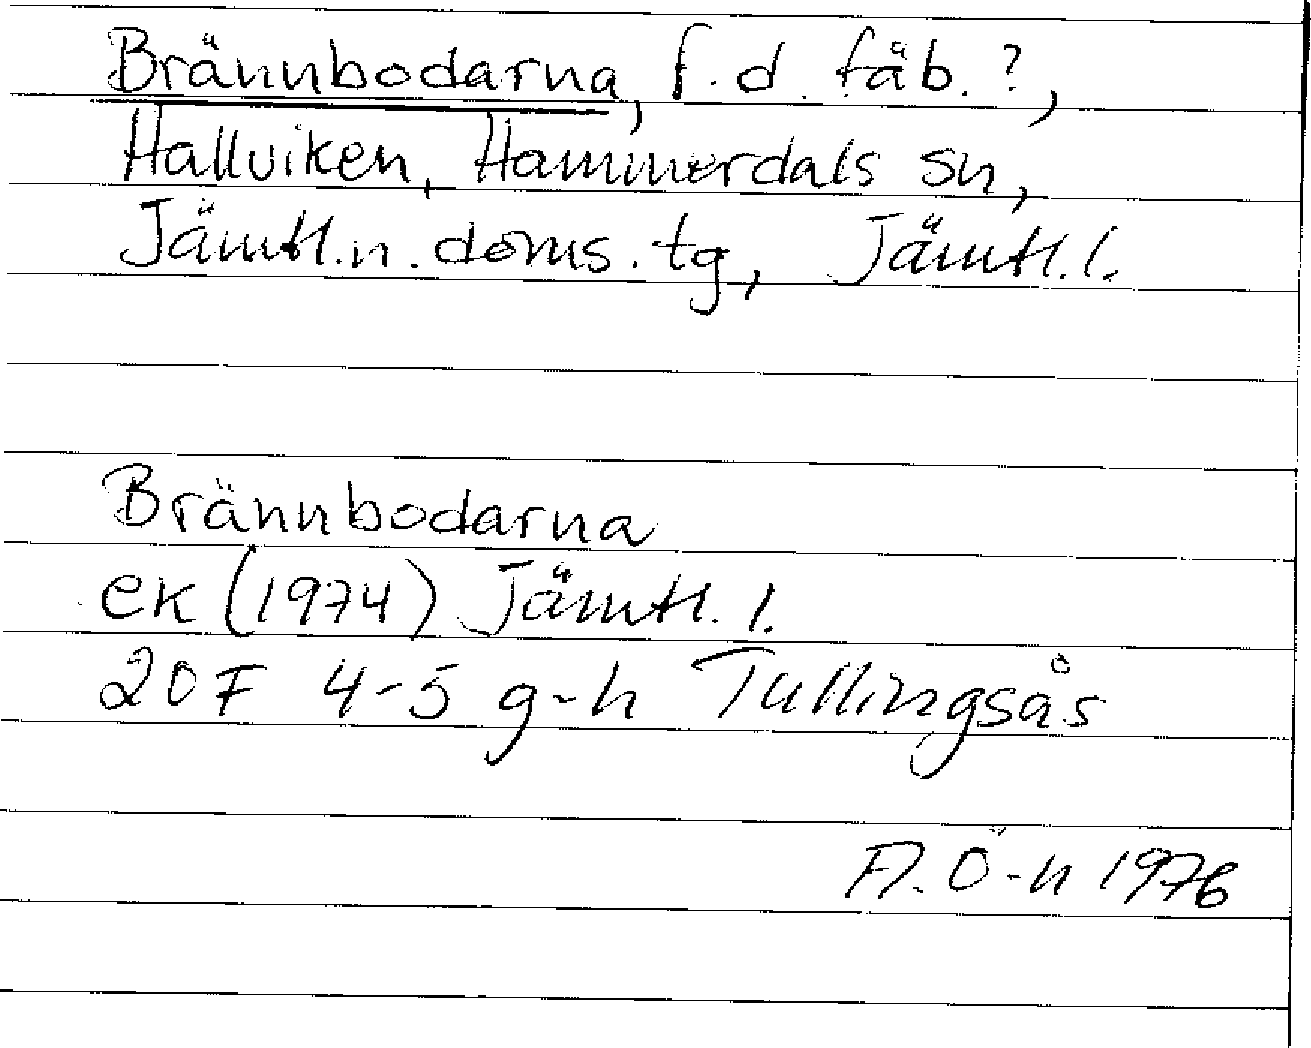 Brännbodarna, f.d. fäb.?,
Hallviken, Hammerdals sn,
Jämtl.n. doms. tg, Jämtl.l.
Brännbodarna
ek (1974) Jämtl. l.
20F 4-5 g-h Tullingsås
Ö-n 1976